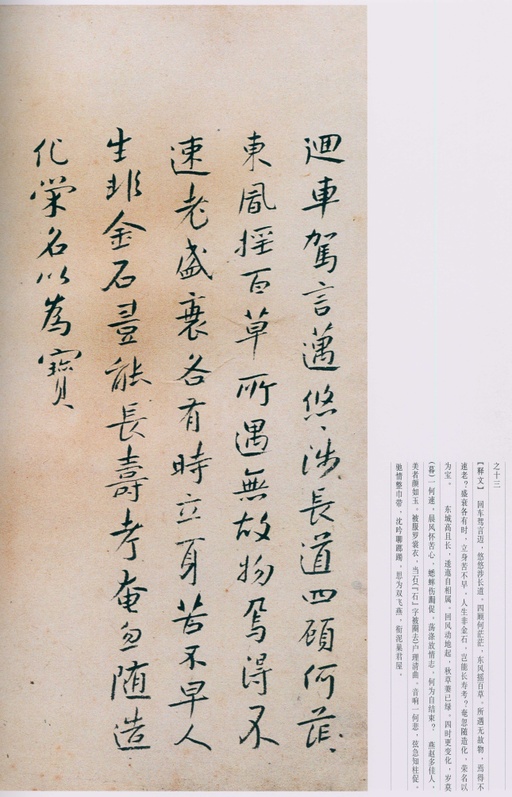 迴車駕言邁悠々涉長道四顧何茫々
東風搖百草所遇無故物焉得不
速老盛衰各有時立身苦不早人
生非金石豈能長壽考奄忽随造
化榮名以為寶
之十三
【释文】 回车驾言迈，悠悠涉长道。四顾何茫茫，东风摇百草。所遇无故物，焉得不
速老？盛衰各有时，立身苦不早。人生非金石，岂能长寿考？奄忽随造化，荣名以
为宝。 东城高且长，逶迤自相属。回风动地起，秋草萋已绿。四时更变化，岁莫
（暮）一何速。晨风怀苦心，蟋蟀伤局促。荡涤放情志，何为自结束？ 燕赵多佳人，
美者颜如玉。被服罗裳衣，当石（『石』字被圈去）户理清曲。音响一何悲，弦急知柱促。
驰情整巾带，沈吟聊踯躅。思为双飞燕，衔泥巢君屋。